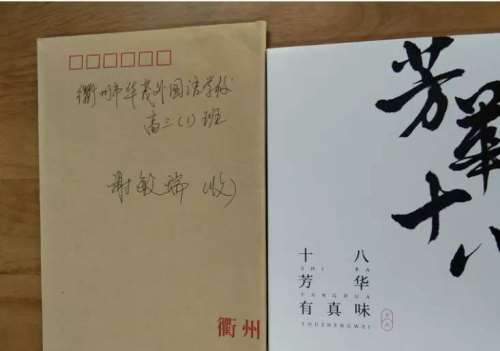 衢州市华茂外国语学校
高三(1)班
谢敏瑞(收)
衢州
芳華
十八
十八
SHI BA
芳华
FANG HUA
有真味
YOU ZHEN WEI